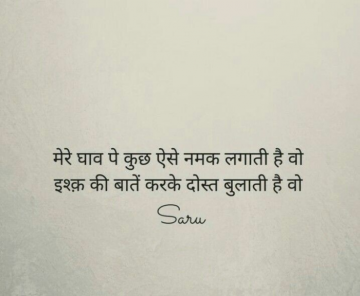 मेरे घाव पे कुछ ऐसे नमक लगाती है वो
इश्क़ की बातें करके दोस्त बुलाती है वो
Saru